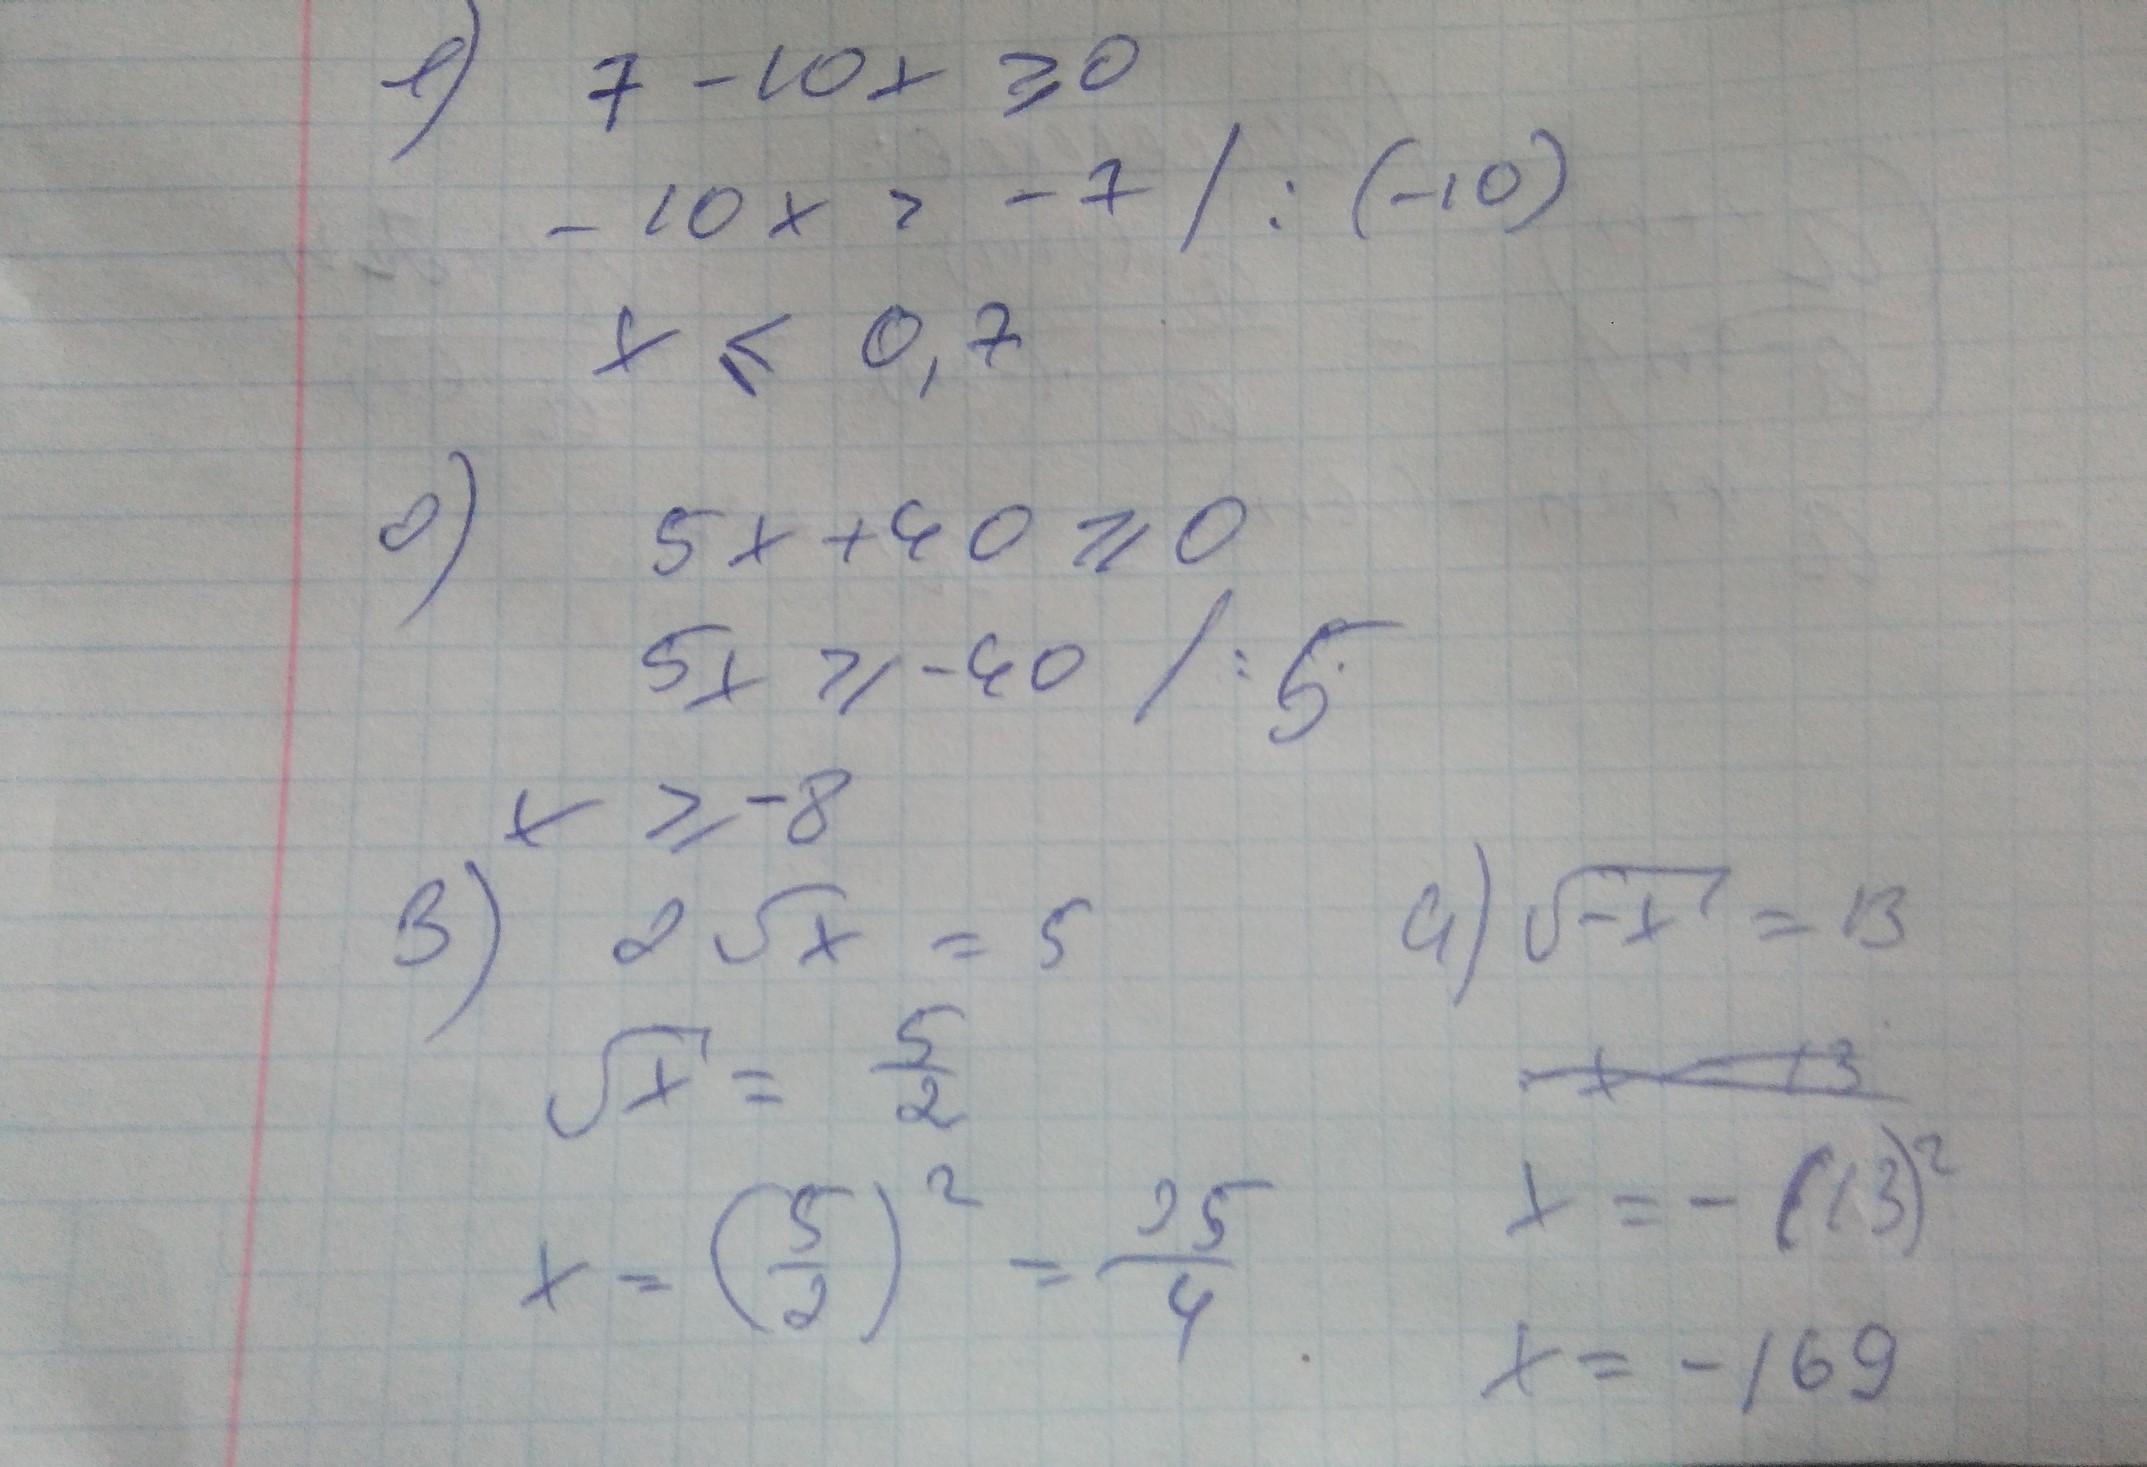 1) 7 - 10x ⩾ 0
- 10x > - 7 / : (-10)
x ⩽ 0,7
2) 5x + 40 ⩾ 0
5x ⩾ -40 / : 5
x ⩾ -8
3) 2√x = 5
√x = 5/2
x = (5/2)² = 25/4
4) √-x = 13
x = - (13)²
x = -169